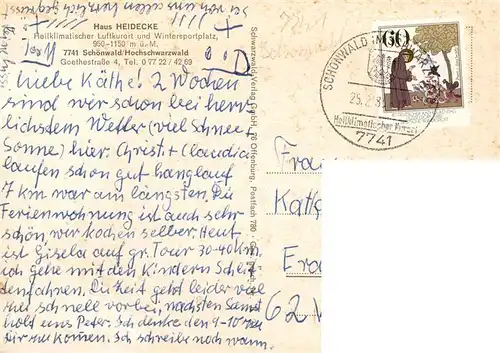 Haus HEIDECKE
Heilklimatischer Luftkurort und Wintersportplatz,
950-1150 m ü. M.
7741 Schönwald/Hochschwarzwald
Goethestraße 4, Tel. 0 77 22 / 42 69
Liebe Käthe! 2 Wochen
sind wir schon bei herr
lichstem Wetter (viel Schnee +
Sonne) hier. Christ. + Claudia
laufen schon gut hanglauf
7 km war am längsten. Die
Ferienwohnung ist auch sehr
schön, wir kochen selber. Heut
ist Gisela auf gr. Tour 30-40 km.
ich gehe mit den Kindern Schlit
tenfahren. Die Zeit geht leider viel
zu schnell vorbei, nächsten Samst
holt uns Peter. Ich denke den 9-10 
für zu kommen. Ich schreibe noch wann.
Schwarzwald-Verlag GmbH, 76 Offenburg, Postfach 780
SCHÖNWALD IM
25.2.8
Heilklimatischer Kurort
7741
60
Frau
Käth
Fra
62